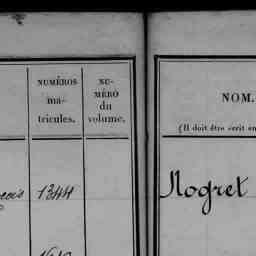 NUMÉROS
ma-
tricules.
NU-
MÉRO
du
volume.
NOM.
(Il doit être écrit en
1344
Nogret